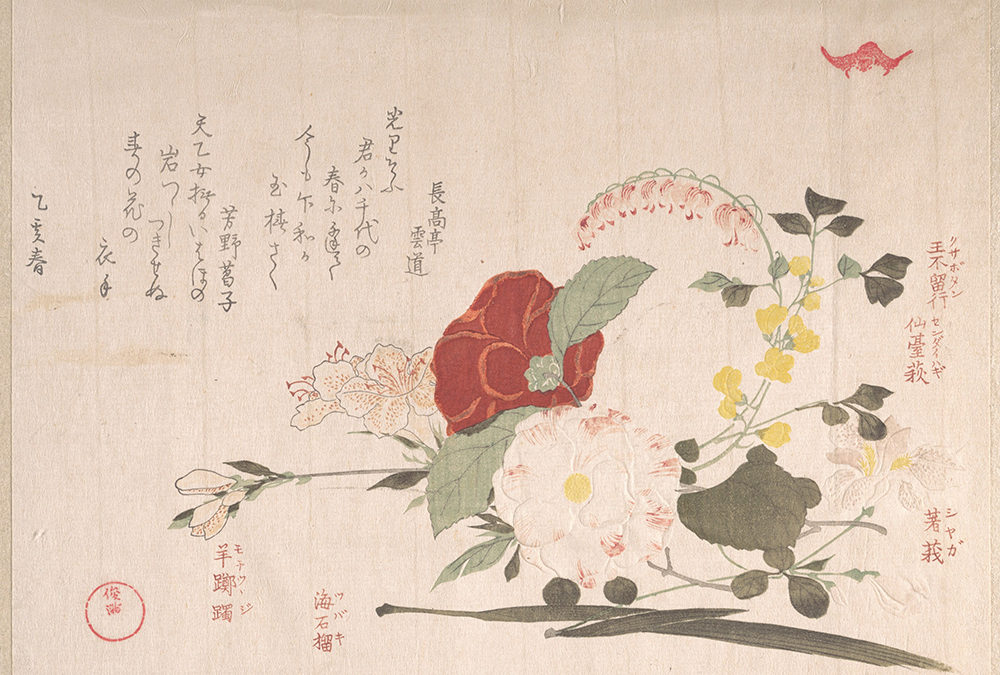 長高亭
雲道
君か八千代の
今も下和か
玉椿さく
芳野菖子
天乙女撫るいはほの
岩つゝし
つきせぬ
春の花の
衣手
乙亥春
クサボタン
王不留行
センダイハギ
仙臺萩
シヤガ
著莪
ツバキ
海石榴
モチツヽジ
羊躑躅
俊満